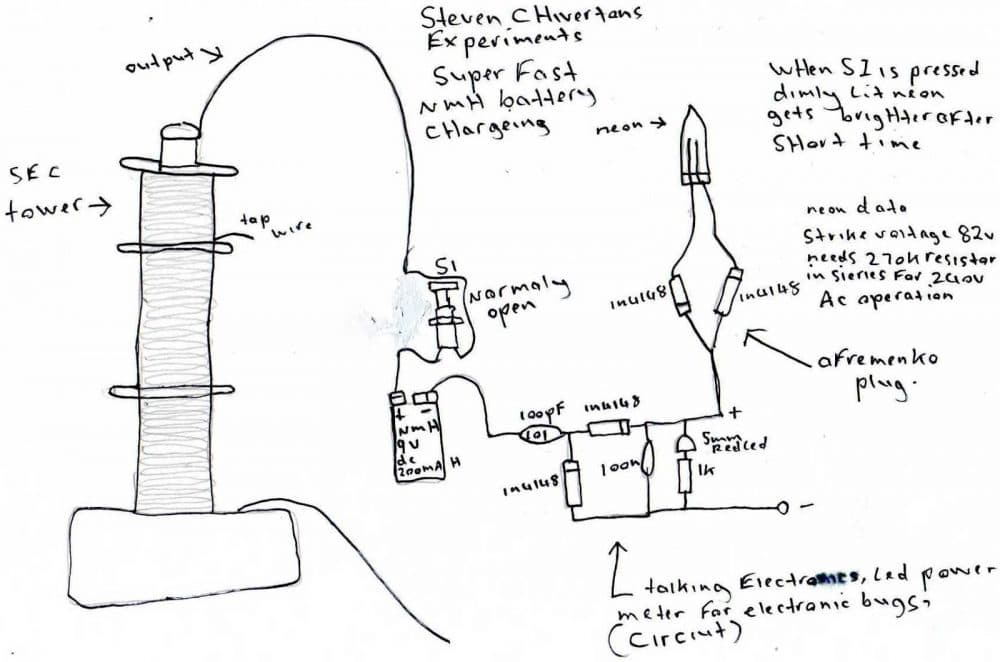 Steven CHivertans
Experiments
Super Fast
NMH battery
CHargeing
output
SEC
tower
tap
wire
S1
normaly
open
neon
WHen S1 is pressed
dimly Lit neon
gets brighter after
SHort time
neon data
Strike voltage 82v
needs 270k resistor
in sieries For 240v
Ac operation
1n4148
1n4148
aFremenko
plug.
+ -
NMH
9v
dc
200mA H
100pF
101
1n4148
1n4148
100n
+
5mm
Red Led
1k
-
talking Electronics, Led power
meter For electronic bugs,
(Circiut)